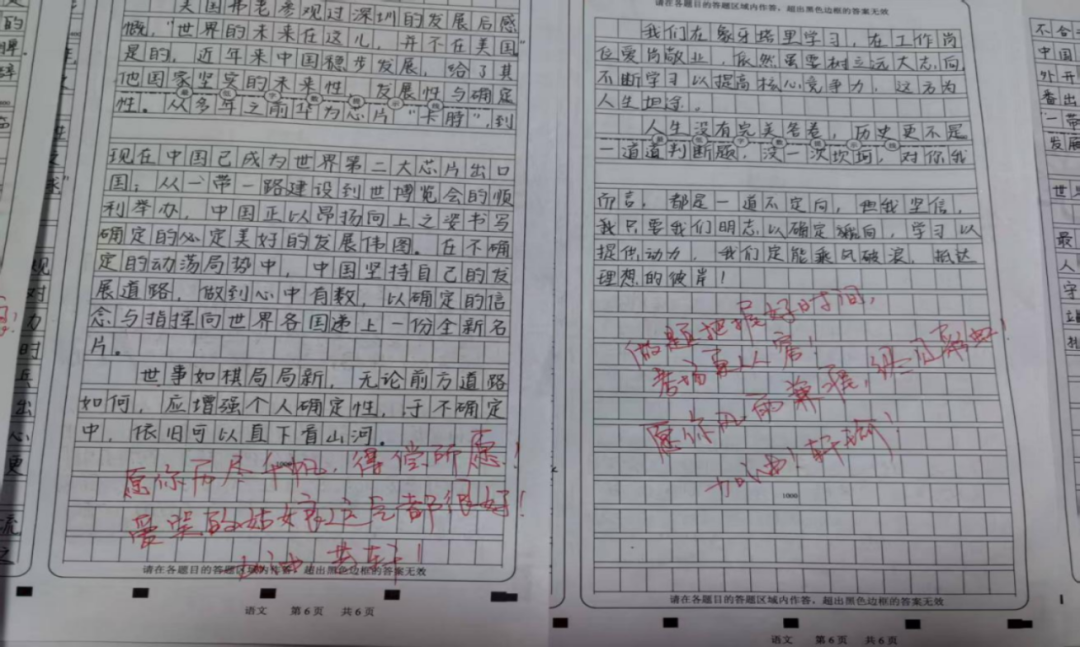 美国弗老参观过深圳的发展后感
慨，“世界的未来在这儿，并不在美国”
是的，近年来中国稳步发展，给了其
他国家坚实的未来性、发展性与确定
性。从多年之前华为芯片“卡脖”，到
现在中国已成为世界第二大芯片出口
国；从一带一路建设到世博览会的顺
利举办，中国正以昂扬向上之姿书写
确定的必定美好的发展伟图。在不确
定的动荡局势中，中国坚持自己的发
展道路，做到心中有数，以确定的信
念与指挥向世界各国递上一份全新名
片。
世事如棋局局新，无论前方道路
如何，应增强个人确定性，于不确定
中，依旧可以直下看山河。
愿你历尽千帆，得偿所愿！
爱笑的姑娘运气都很好！
加油
请在各题目的答题区域内作答，超出黑色边框的答案无效
语文 第6页 共6页
请在各题目的答题区域内作答，超出黑色边框的答案无效
我们在象牙塔里学习，在工作岗
位爱岗敬业，依然虽要树立远大志向
不断学习以提高核心竞争力，这方为
人生坦途。
人生没有完美答卷，历史更不是
一道道判断题，没一次坎坷，对你我
而言，都是一道不定向，但我坚信，
我只要我们明志以确定航向，学习以
提供动力，我们定能乘风破浪，抵达
理想的彼岸！
做题把握好时间，
考场直上人宾！
愿你风雨兼程，终
加油！
1000
请在各题目的答题区域内作答，超出黑色边框的答案无效
语文 第6页 共6页